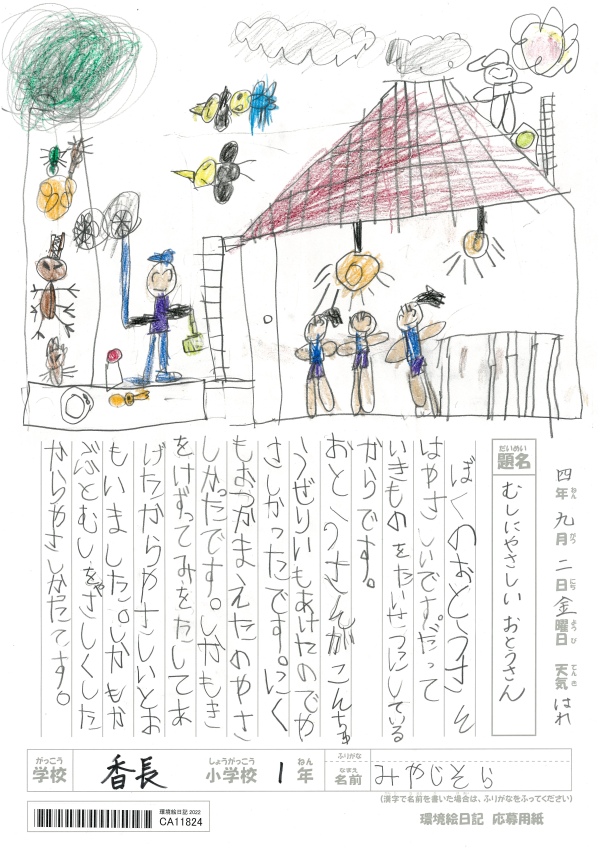 四年九月二日金曜日 天気 はれ
ねん がつ にち ようび てんき
だいめい
題名 むしにやさしい おとうさん
ぼくのおとうさん
はやさしいです。だって
いきものをたいせつにしている
からです。
おとうさんがこんちゅ
うぜりいもあけたのでや
さしかったです。にく
もおつかまえたのやさ
しかったです。しかもき
をけずってみをたしてあ
げたからやさしいとお
もいました。しかもか
ぶとむしをやさしくした
からやさしかたてす。
がっこう しょうがっこう ねん ふりがな なまえ
学校 香長 小学校 1年 名前 みやじそら
(漢字で名前を書いた場合は、ふりがなをふってください)
環境絵日記 2022
CA11824
環境絵日記 応募用紙